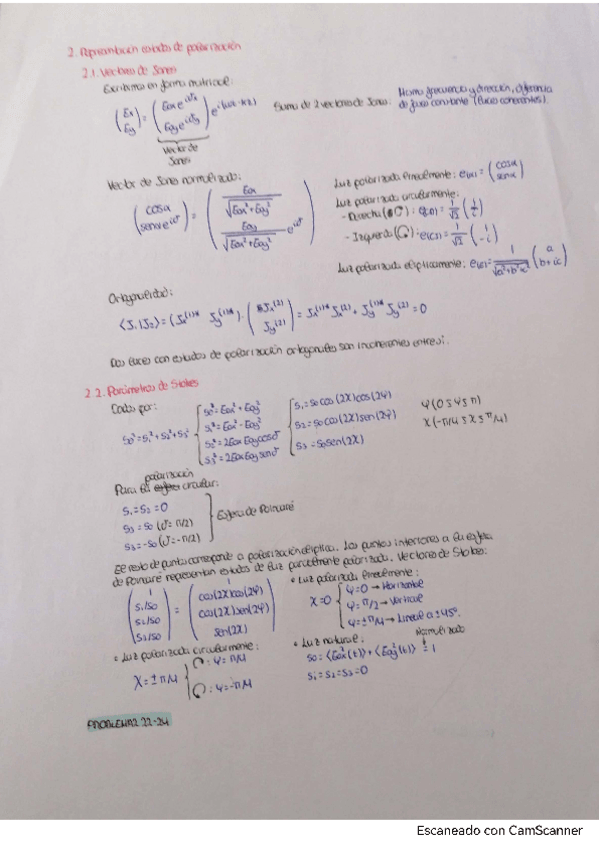 2. Representación estados de polarización
2.1. Vectores de Jones
Escribimos en forma matricial:
(Ex Ey) = (Eox e^iδx Eoy e^iδy) e^i(ωt-kz) Suma de 2 vectores de Jones: Misma frecuencia y dirección, diferencia de fase constante (luces coherentes).
Vector de Jones
Vector de Jones normalizado:
(cosα senα e^iδ) = (Eox/√(Eox²+Eoy²) Eoy/√(Eox²+Eoy²) e^iδ)
Luz polarizada linealmente: e(α) = (cosα senα)
Luz polarizada circularmente:
- Derecha (↻): e(n) = 1/√2 (1 i)
- Izquierda (↺): e(n) = 1/√2 (1 -i)
Luz polarizada elípticamente: e(n) = 1/√(a²+b²+c²) (a b+ic)
Ortogonalidad:
⟨J1|J2⟩ = (Jx^(1)* Jy^(1)*) · (Jx^(2) Jy^(2)) = Jx^(1)* Jx^(2) + Jy^(1)* Jy^(2) = 0
Dos luces con estados de polarización ortogonales son incoherentes entre sí.
2.2. Parámetros de Stokes
Dados por:
S0² = S1² + S2² + S3²
S0² = Eox² + Eoy²
S1² = Eox² - Eoy²
S2² = 2EoxEoy cosδ
S3² = 2EoxEoy senδ
S1 = S0 cos(2χ)cos(2ψ)
S2 = S0 cos(2χ)sen(2ψ)
S3 = S0 sen(2χ)
ψ (0 ≤ ψ ≤ π)
χ (-π/4 ≤ χ ≤ π/4)
polarización
Para la circular:
S1 = S2 = 0
S3 = S0 (δ = π/2)
S3 = -S0 (δ = -π/2)
Esfera de Poincaré
El resto de puntos corresponde a polarización elíptica. Los puntos interiores a la esfera
de Poincaré representan estados de luz parcialmente polarizada. Vectores de Stokes:
(1 S1/S0 S2/S0 S3/S0) = (1 cos(2χ)cos(2ψ) cos(2χ)sen(2ψ) sen(2χ))
• Luz polarizada linealmente:
χ = 0
ψ = 0 → Horizontal
ψ = π/2 → Vertical
ψ = ±π/4 → Lineal a ±45°.
• Luz polarizada circularmente:
χ = ±π/4
↻: ψ = π/4
↺: ψ = -π/4
• Luz natural:
Normalizado
S0 = ⟨Eox²(t)⟩ + ⟨Eoy²(t)⟩ = 1
S1 = S2 = S3 = 0
PROBLEMAS 22-24
Escaneado con CamScanner